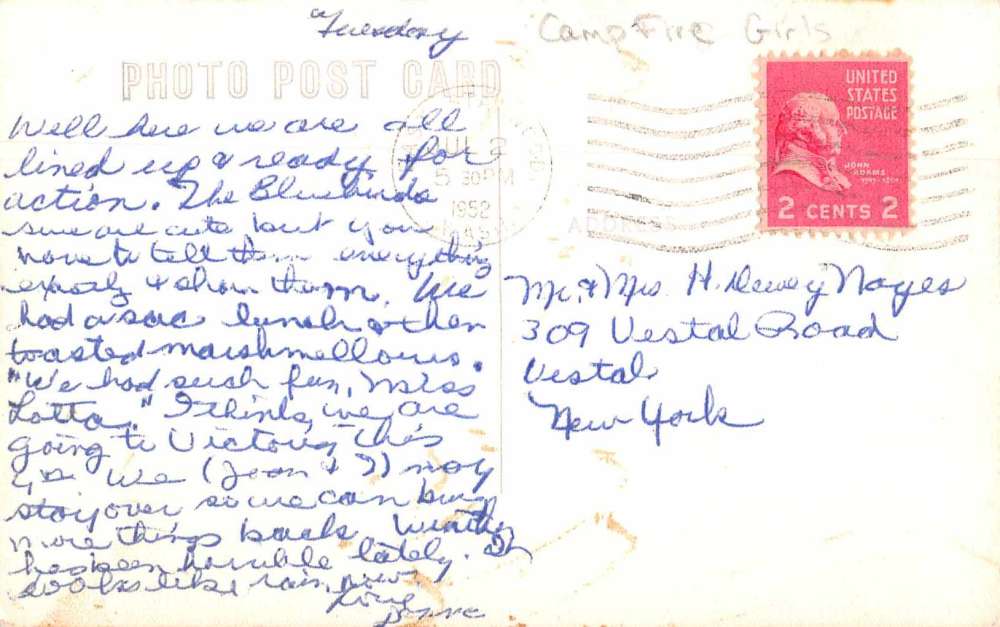 Tuesday
Camp Fire Girls
PHOTO POST CARD
Well here we are all
lined up & ready for
action. The Bluebirds
sure are cute but you
have to tell them everything
exactly & show them. We
had a sac lunch & then
toasted marshmellows.
"We had such fun, Miss
Lotta." I think we are
going to Victoria this
We (Joan & I) may
stay over so we can bring
more things back. Weather
has been horrible lately. It
looks like rain now.
Love
JUL 2
5 30 PM
1952
ADDRESS
UNITED
STATES
POSTAGE
JOHN
ADAMS
1797-1801
2 CENTS 2
Mr. & Mrs. H. Dewey Noyes
309 Vestal Road
Vestal
New York